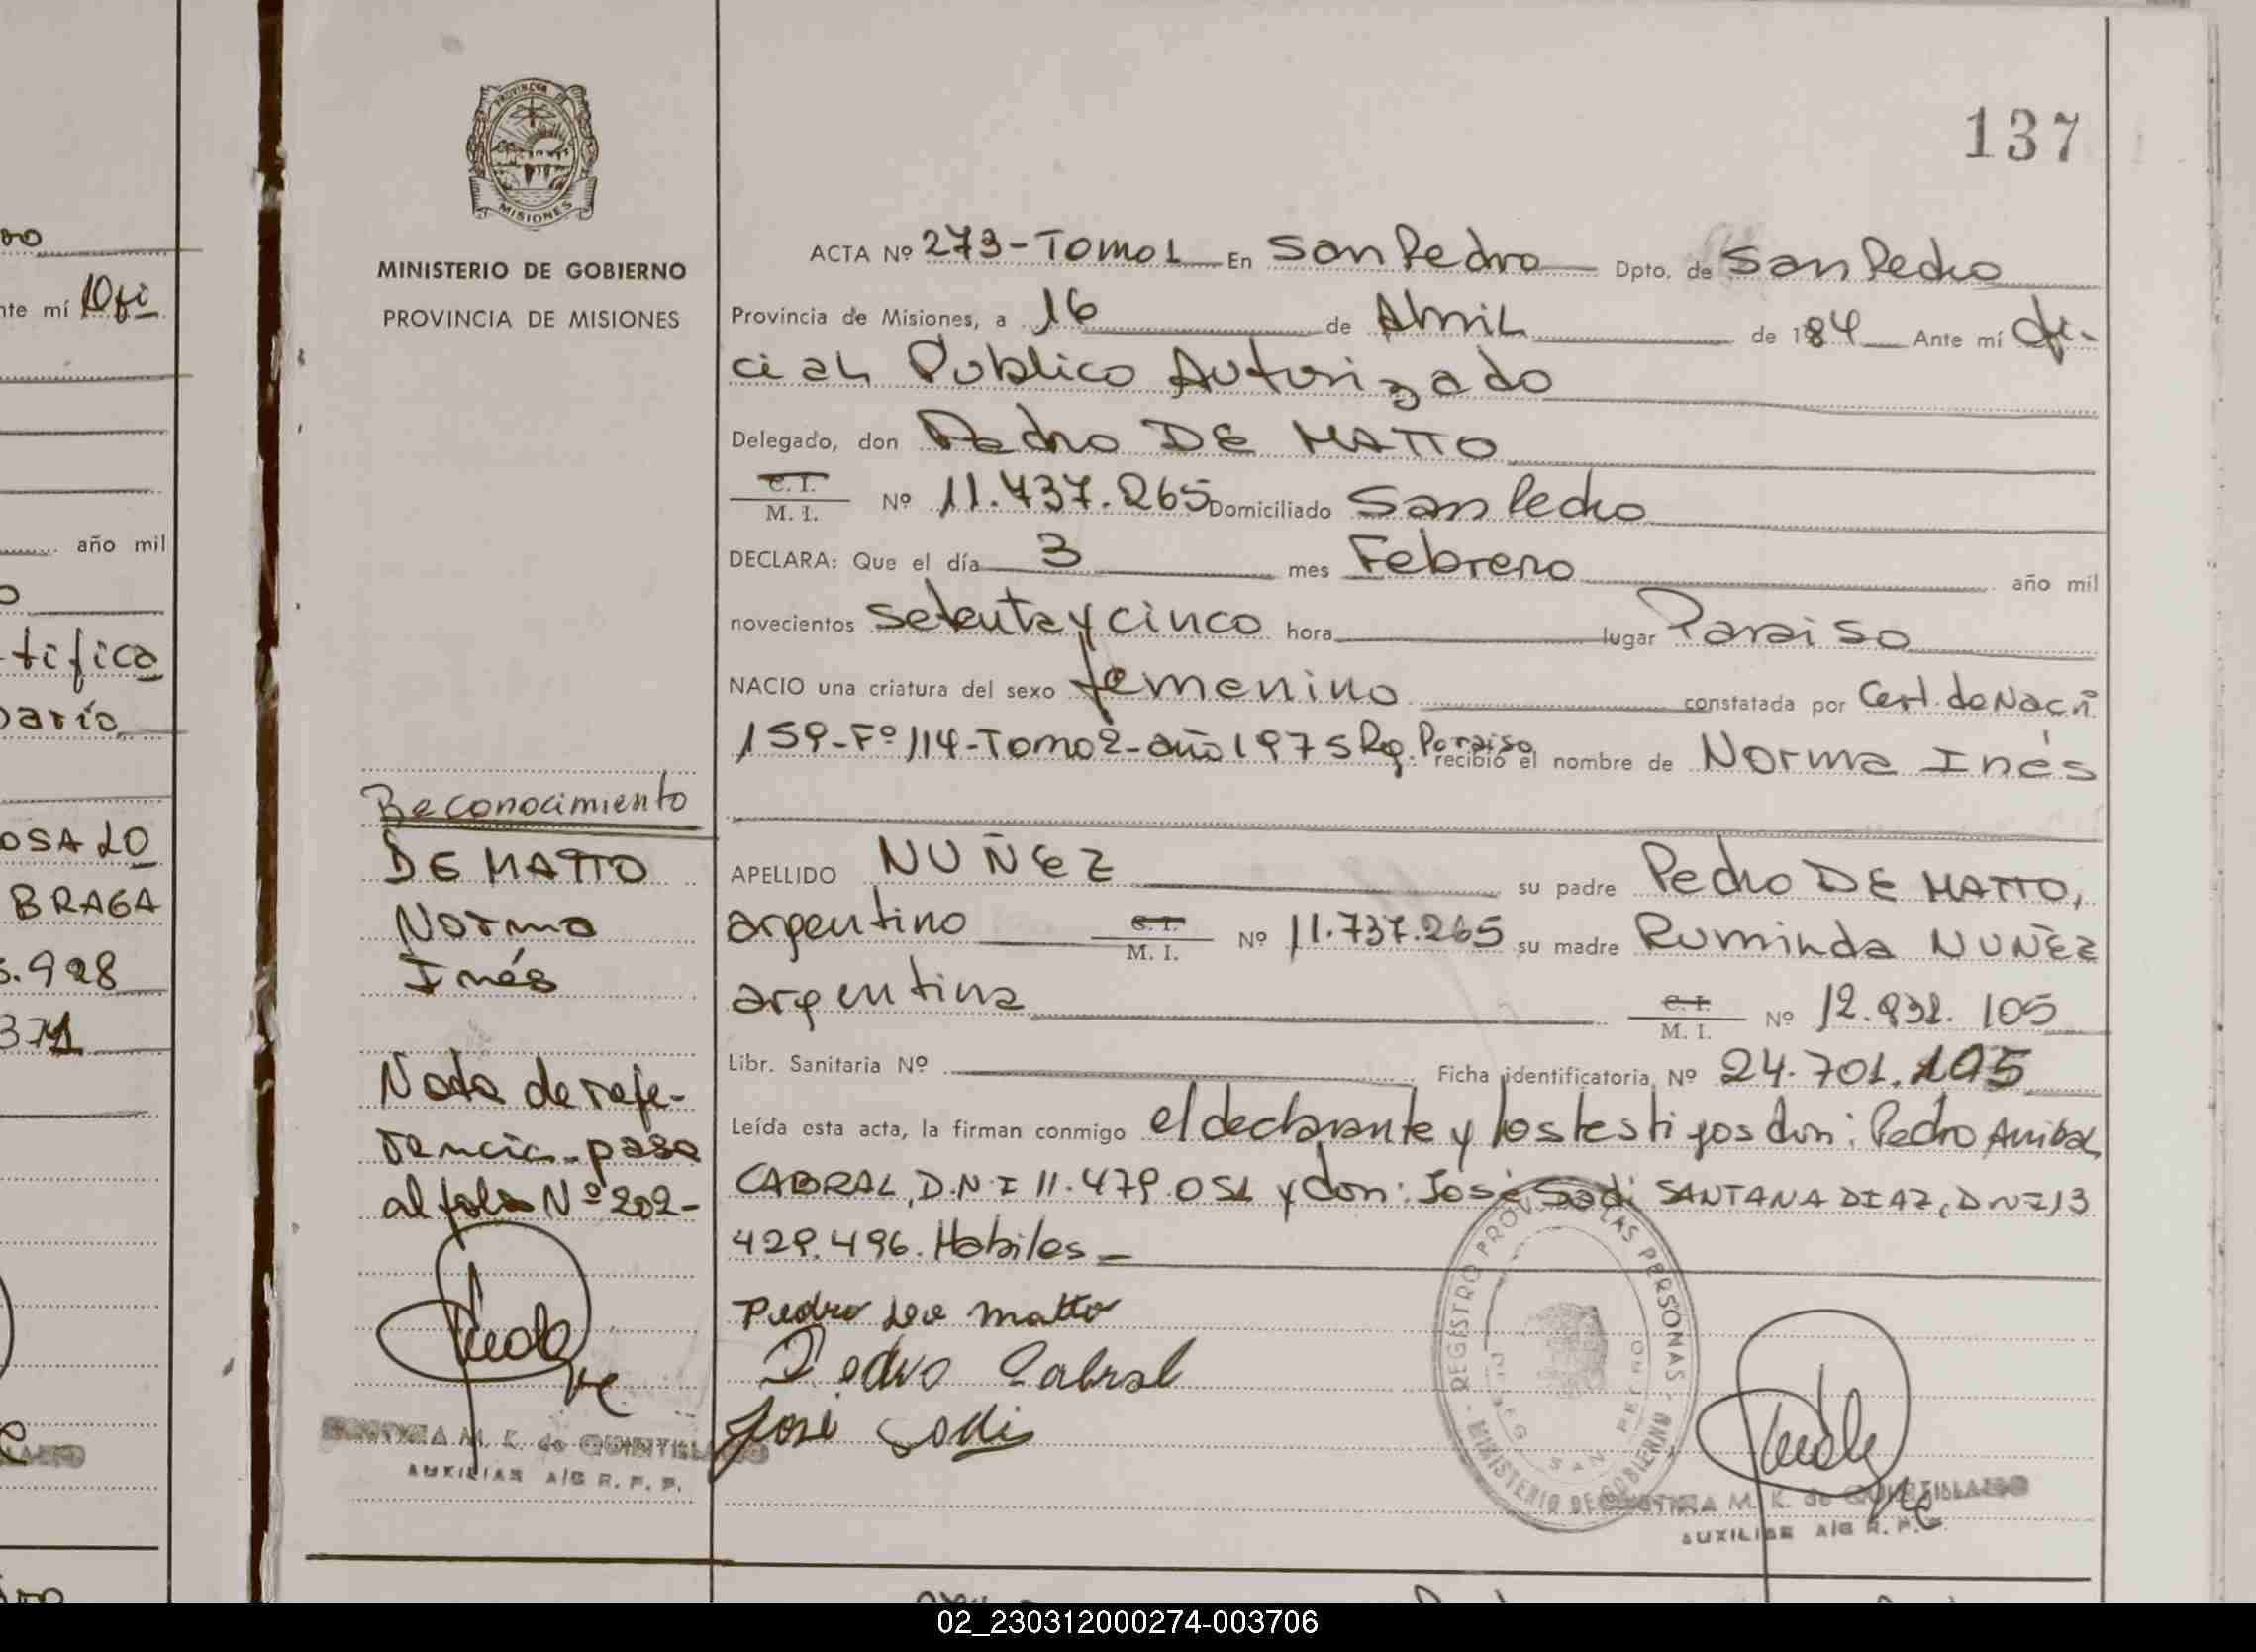 137
PROVINCIA DE
MISIONES
MINISTERIO DE GOBIERNO
PROVINCIA DE MISIONES
ACTA Nº 273-Tomo 1 En San Pedro Dpto. de San Pedro
Provincia de Misiones, a 16 de Abril de 1984 Ante mí Ofi-
cial Publico Autorizado
Delegado, don Pedro DE MATTO
C. I.
M. I. Nº 11.737.265 Domiciliado San Pedro
DECLARA: Que el día 3 mes Febrero año mil
novecientos setenta y cinco hora lugar Paraiso
NACIO una criatura del sexo femenino constatada por Cert. de Nac.
159-Fº 114-Tomo 2-año 1975 Reg. Paraiso recibió el nombre de Norma Inés
APELLIDO NUÑEZ su padre Pedro DE MATTO,
argentino C. I. M. I. Nº 11.737.265 su madre Ruminda NUÑEZ
argentina C. I. M. I. Nº 12.932.105
Libr. Sanitaria Nº Ficha identificatoria Nº 24.701.105
Leída esta acta, la firman conmigo el declarante y los testigos don: Pedro Anibal
CABRAL, D.N.I 11.479.051 y don: José Sadi SANTANA DIAZ, DNI 13
429.496. Habiles
Pedro de matto
Pedro Cabral
José Sodi
Reconocimiento
DE MATTO
Norma
Inés
Nota de refe-
rencia pasa
al folio Nº 202-
M. K. de QUINTILLANO
AUXILIAR A/C R. P. P.
REGISTRO PROV. DE LAS PERSONAS
MINISTERIO DE GOBIERNO
SAN PEDRO
M. K. de QUINTILLANO
AUXILIAR A/C R. P. P.
nte mí Ofi
año mil
tifica
dario
OSA LO
BRAGA
.928
371
02_230312000274-003706